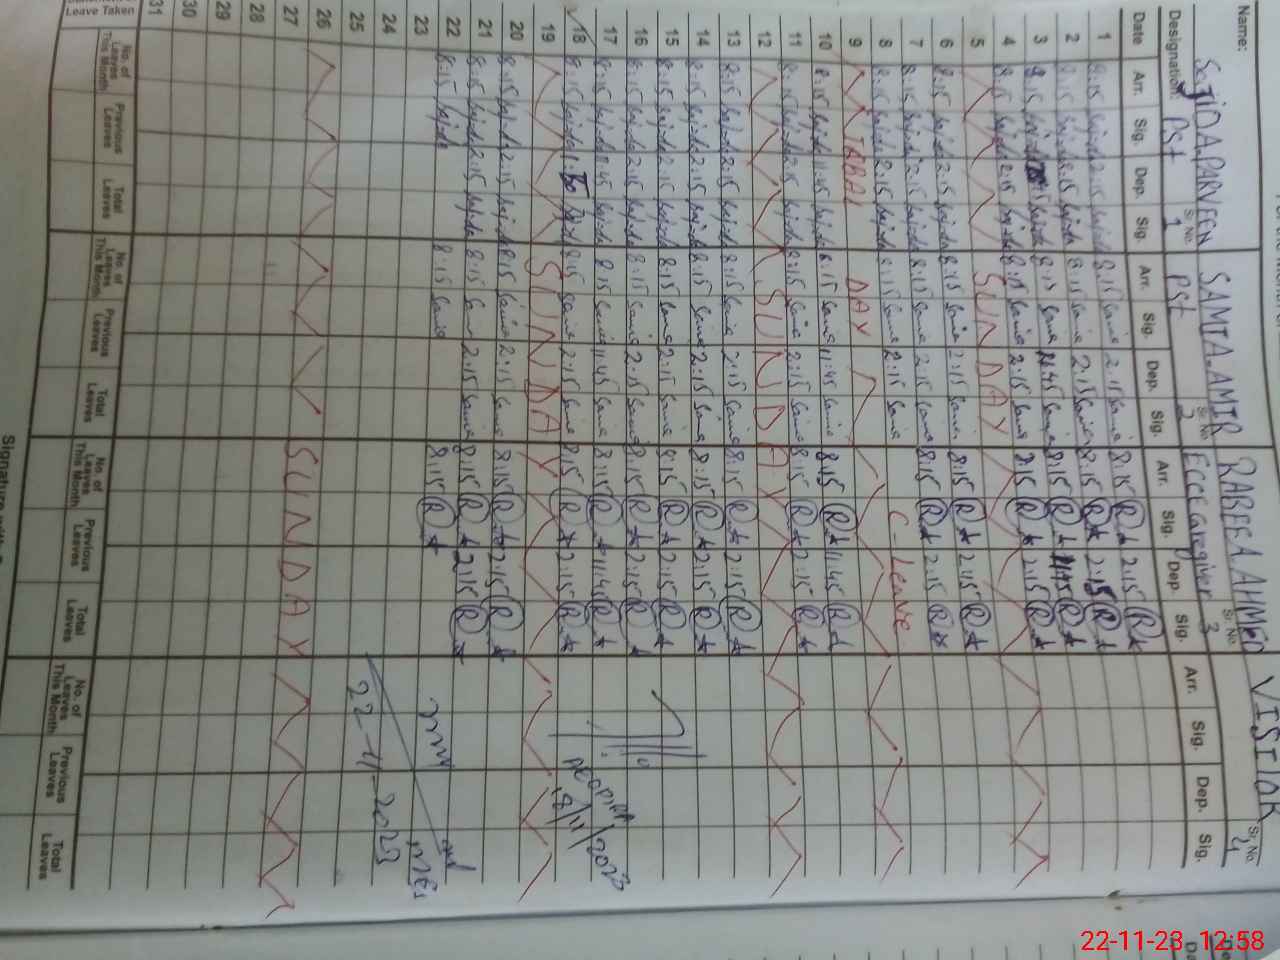 Name: SAJIDA PARVEEN SAMIA.AMIR RABEEA.AHMED VISITOR
Designation: PST Sr. No. 1 PST Sr. No. 2 ECCE caregiver Sr. No. 3 Sr. No. 4
Date Arr. Sig. Dep. Sig. Arr. Sig. Dep. Sig. Arr. Sig. Dep. Sig. Arr. Sig. Dep. Sig.
1 8:15 Sajida 2:15 Sajida 8:15 Samia 2:15 Samia 8:15 R 2:15 R
2 8:15 Sajida 2:15 Sajida 8:15 Samia 2:15 Samia 8:15 R 2:15 R
3 8:15 Sajida Sajida 8:15 Samia 11:45 Samia 8:15 R 11:45 R
4 8:15 Sajida 2:15 Sajida 8:15 Samia 2:15 Samia 8:15 R 2:15 R
5 SUNDAY
6 8:15 Sajida 2:15 Sajida 8:15 Samia 2:15 Samia 8:15 R 2:15 R
7 8:15 Sajida 2:15 Sajida 8:15 Samia 2:15 Samia 8:15 R 2:15 R
8 8:15 Sajida 2:15 Sajida 8:15 Samia 2:15 Samia C-Leave
9 IQBAL DAY
10 8:15 Sajida 11:45 Sajida 8:15 Samia 11:45 Samia 8:15 R 11:45 R
11 8:15 Sajida 2:15 Sajida 8:15 Samia 2:15 Samia 8:15 R 2:15 R
12 SUNDAY
13 8:15 Sajida 2:15 Sajida 8:15 Samia 2:15 Samia 8:15 R 2:15 R
14 8:15 Sajida 2:15 Sajida 8:15 Samia 2:15 Samia 8:15 R 2:15 R
15 8:15 Sajida 2:15 Sajida 8:15 Samia 2:15 Samia 8:15 R 2:15 R
16 8:15 Sajida 2:15 Sajida 8:15 Samia 2:15 Samia 8:15 R 2:15 R
17 8:15 Sajida 11:45 Sajida 8:15 Samia 11:45 Samia 8:15 R 11:45 R
18 8:15 Sajida Sajida 8:15 Samia 2:15 Samia 8:15 R 2:15 R 18/11/2023
19 SUNDAY
20 8:15 Sajida 2:15 Sajida 8:15 Samia 2:15 Samia 8:15 R 2:15 R
21 8:15 Sajida 2:15 Sajida 8:15 Samia 2:15 Samia 8:15 R 2:15 R
22 8:15 Sajida 8:15 Samia 8:15 R
23
24 22-11-2023
25
26 SUNDAY
27
28
29
30
31
Leave Taken No. of Leaves This Month Previous Leaves Total Leaves No. of Leaves This Month Previous Leaves Total Leaves No. of Leaves This Month Previous Leaves Total Leaves No. of Leaves This Month Previous Leaves Total Leaves
Signature
22-11-23 12:58